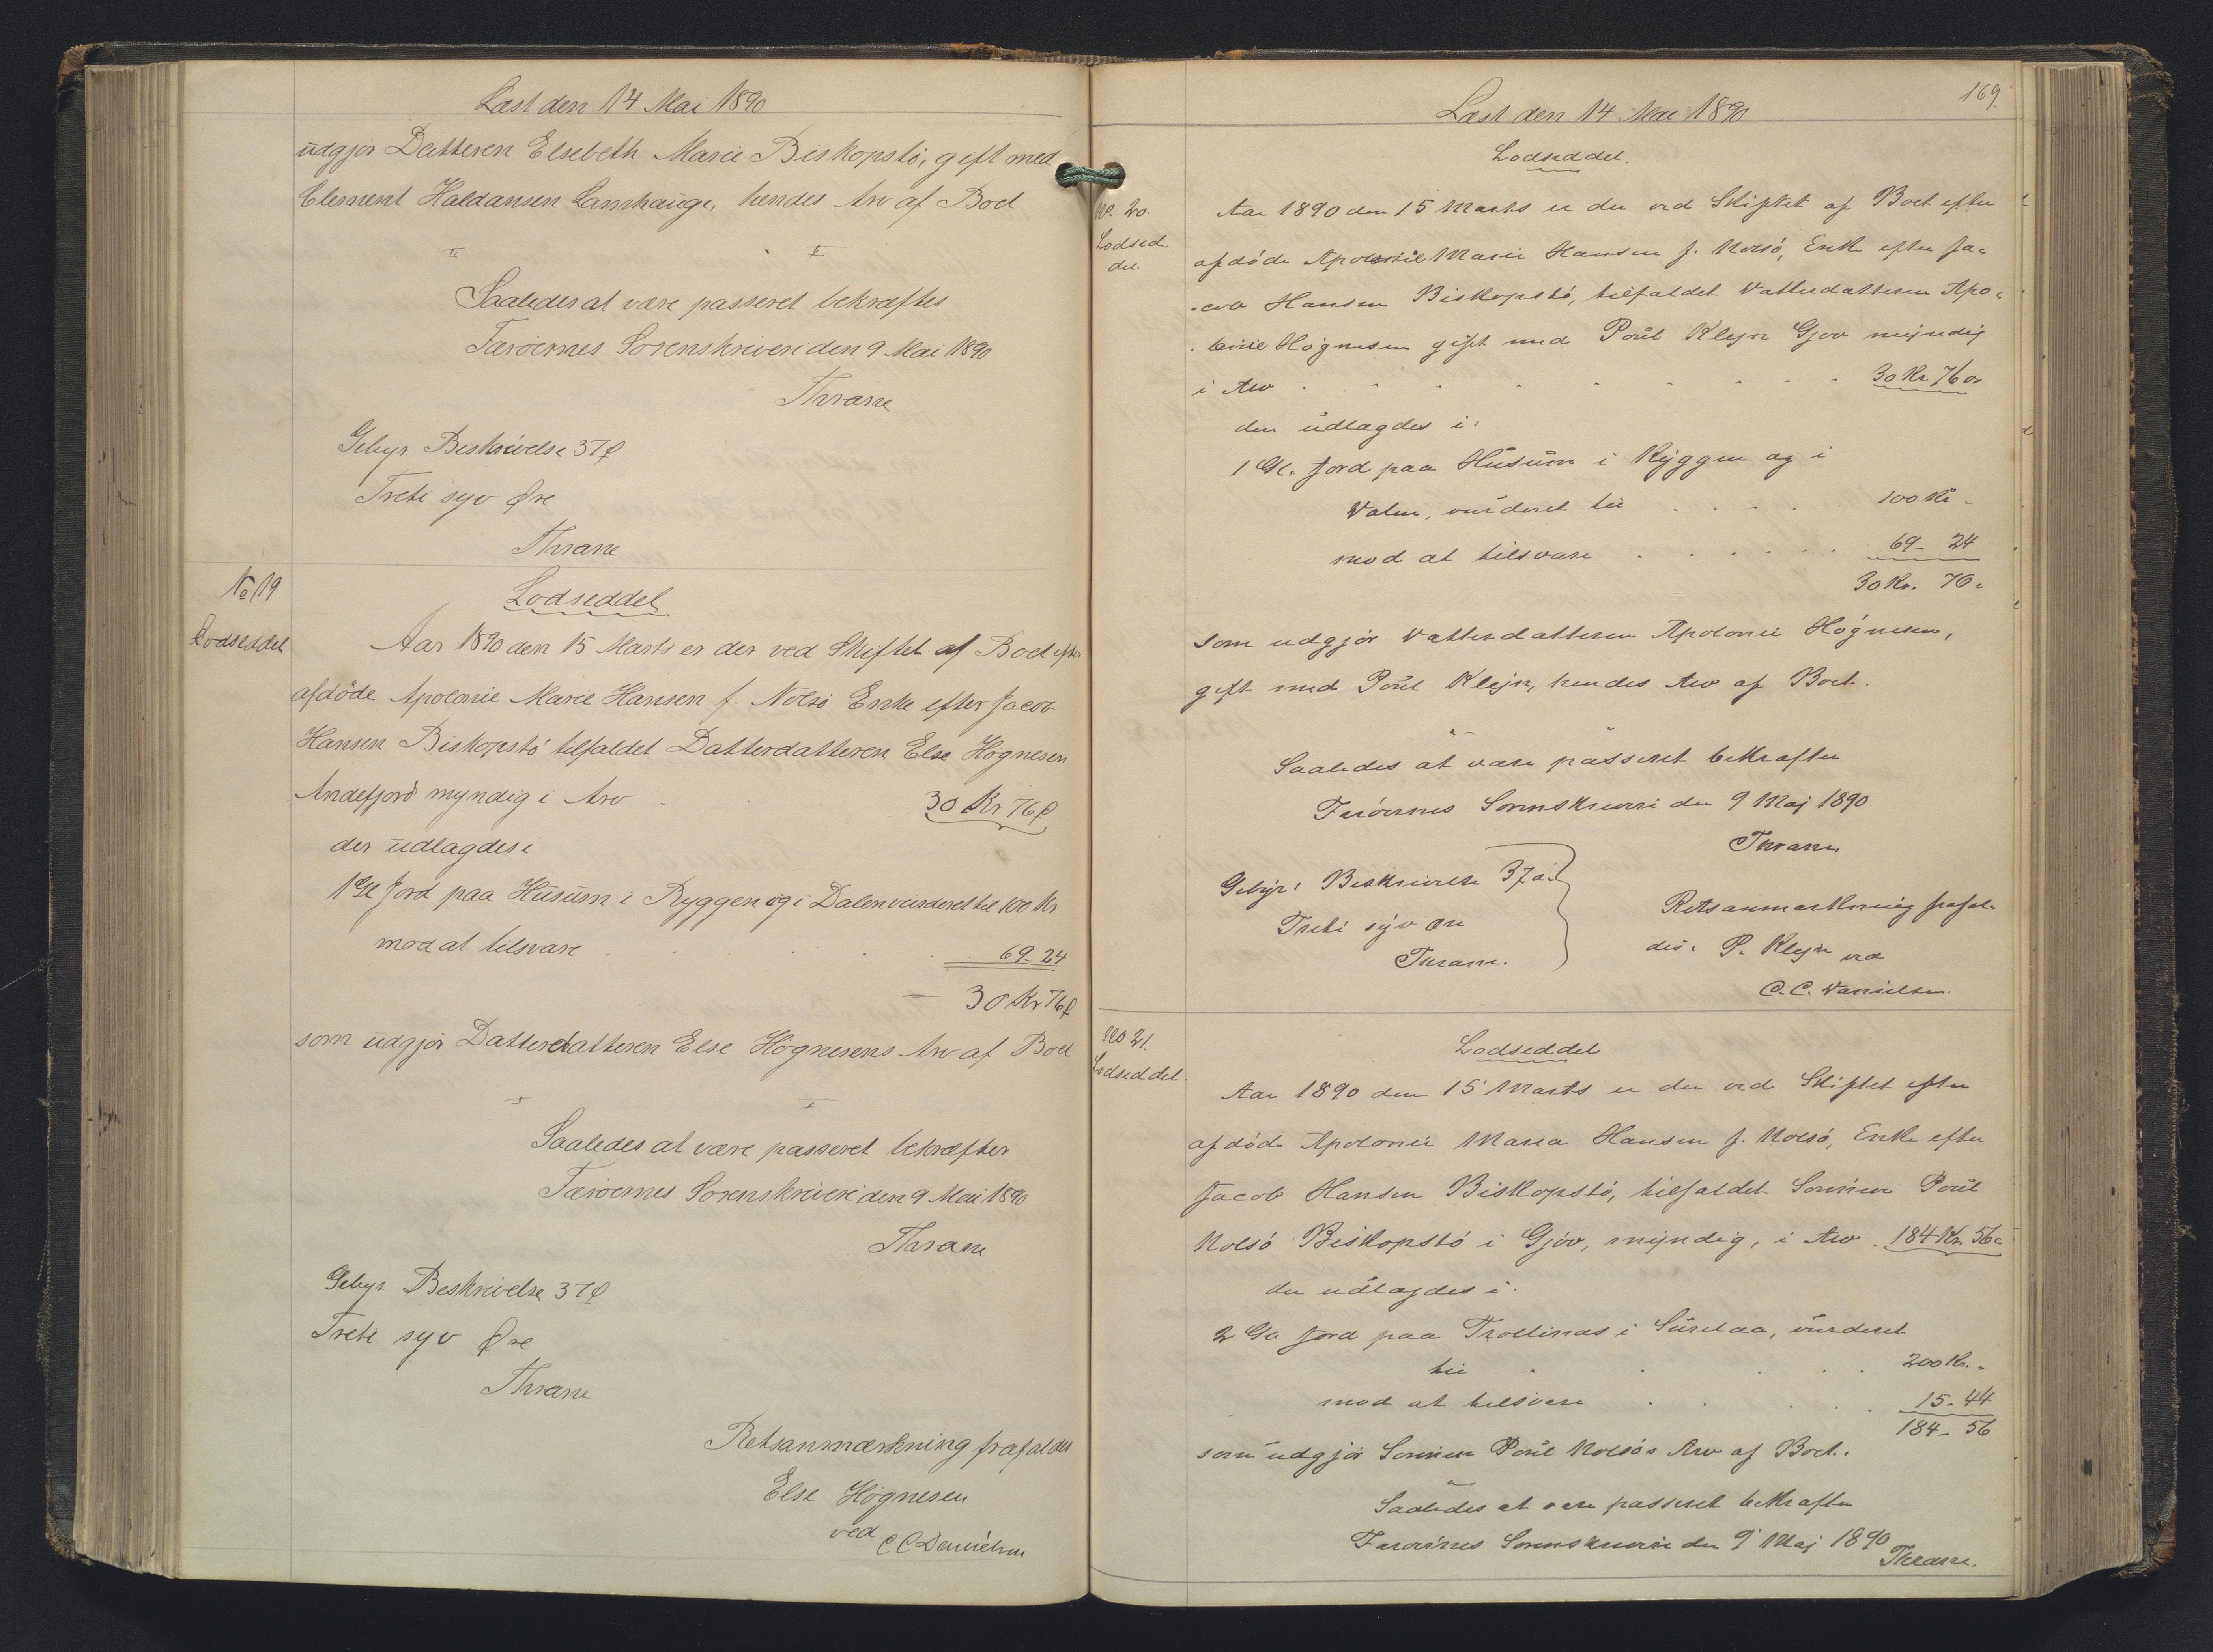 Læst den 14 Mai 1890
udgjør Datteren Elsebeth Marie Biskopstö, gift med
Clement Haldansen Lamhauge, hendes Arv af Boet
Saaledes at være passeret bekræftes
Færöernes Sorenskriveri den 9 Mai 1890
Thrane
Gebyr Beskrivelse 37 Ø
Treti syv Øre
Thrane
No 19
Lodseddel
Lodseddel
Aar 1890 den 15 Marts er der ved Skiftet af Boet efter
afdöde Apolonie Marie Hansen f. Nolsö Enke efter Jacob
Hansen Biskopstö tilfaldet Datterdatteren Else Högnesen
Andefjord myndig i Arv . . 30 Kr 76 Ø
der udlagdes i
1 Gl Jord paa Husum i Ryggen og i Dalen vurderet til 100 Kr
mod at tilsvare . . . . 69-24
30 Kr 76 Ø
som udgjør Datterdatteren Else Högnesens Arv af Boet
Saaledes at være passeret bekræfter
Færöernes Sorenskriveri den 9 Mai 1890
Thrane
Gebyr Beskrivelse 37 Ø
Treti syv Øre
Thrane
Retsanmærkning frafaldes
Else Högnesen
ved
C C Danielsen
169.
Læst den 14 Mai 1890
Lodseddel.
No. 20.
Lodsed
del.
Aar 1890 den 15 Marts er der ved Skiftet af Boet efter
afdöde Apolonie Marie Hansen f. Nolsö, Enke efter Ja-
cob Hansen Biskopstö, tilfaldet Datterdatteren Apo-
lonie Högnesen gift med Poul Klejn Gjov myndig
i Arv . . . . . . . . 30 Kr 76 ør
der udlagdes i:
1 Gl. Jord paa Husum i Ryggen og i
Dalen, vurderet til . . . . . 100 Kr -
mod at tilsvare . . . . . . 69- 24
30 Kr. 76.
som udgjør Datterdatteren Apolonie Högnesen,
gift med Poul Klejn, hendes Arv af Boet.
Saaledes at være passeret bekræfter
Færöernes Sorenskriveri den 9 Maj 1890
Thrane
Gebyr: Beskrivelse 37 ø.
Treti syv Øre
Thrane.
Retsanmærkning frafal-
des: P. Klejn ved
C. C. Danielsen.
No 21.
Lodseddel.
Lodseddel
Aar 1890 den 15 Marts er der ved Skiftet efter
afdöde Apolonie Maria Hansen f. Nolsö, Enke efter
Jacob Hansen Biskopstö, tilfaldet Sönnen Poul
Nolsö Biskopstö i Gjov, myndig, i Arv . 184 Kr. 56
der udlagdes i.
2 Gl. Jord paa Trollenæs i Suridaa, vurderet
til . . . . 200 Kr. -
mod at tilsvare . . . . . 15-44
184-56
som udgjør Sönnen Poul Nolsös Arv af Boet.
Saaledes at være passeret bekræfter
Færöernes Sorenskriveri den 9 Maj 1890
Thrane.